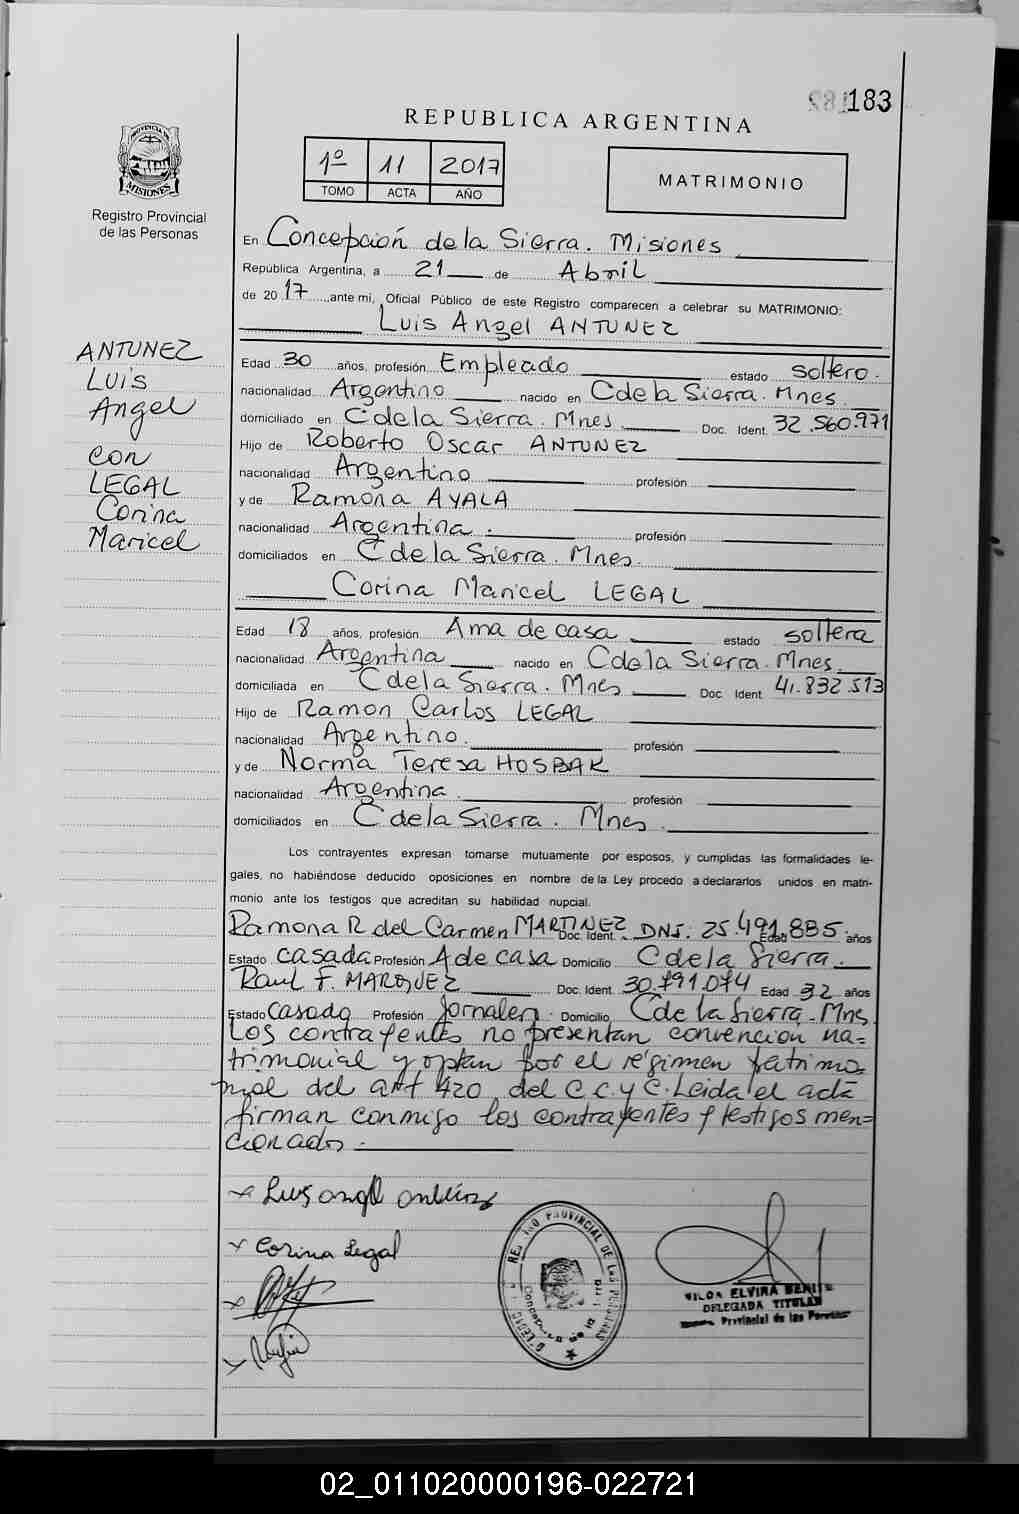 183
REPUBLICA ARGENTINA
1º 11 2017
TOMO ACTA AÑO
MATRIMONIO
PROVINCIA DE MISIONES
Registro Provincial
de las Personas
En Concepción de la Sierra. Misiones
República Argentina, a 21 de Abril
de 2017 ante mi, Oficial Público de este Registro comparecen a celebrar su MATRIMONIO:
Luis Angel ANTUNEZ
ANTUNEZ
Luis
Angel
con
LEGAL
Corina
Maricel
Edad 30 años, profesión Empleado estado soltero.
nacionalidad Argentino nacido en C de la Sierra. Mnes.
domiciliado en C de la Sierra. Mnes Doc. Ident. 32.560.971
Hijo de Roberto Oscar ANTUNEZ
nacionalidad Argentino profesión
y de Ramona AYALA
nacionalidad Argentina. profesión
domiciliados en C de la Sierra. Mnes.
Corina Maricel LEGAL
Edad 18 años, profesión Ama de casa estado soltera
nacionalidad Argentina nacido en C de la Sierra. Mnes.
domiciliada en C de la Sierra. Mnes Doc. Ident 41.832.513
Hijo de Ramon Carlos LEGAL
nacionalidad Argentino. profesión
y de Norma Teresa HOSBAK
nacionalidad Argentina. profesión
domiciliados en C de la Sierra. Mnes.
Los contrayentes expresan tomarse mutuamente por esposos, y cumplidas las formalidades le-
gales, no habiéndose deducido oposiciones en nombre de la Ley procedo a declararlos unidos en matri-
monio ante los testigos que acreditan su habilidad nupcial.
Ramona R del Carmen MARTINEZ Doc. Ident. DNI. 25.491.885. Edad años
Estado casada Profesión A de casa Domicilio C de la Sierra.
Raul F. MARQUEZ Doc. Ident. 30.791.074 Edad 32 años
Estado Casado Profesión Jornalero Domicilio C de la Sierra. Mns
Los contrayentes no presentan convencion ma=
trimonial y optan por el régimen patrimo
nial del art 420 del C.C. y C. Leida el acta
firman conmigo los contrayentes y testigos men=
cionados.
x Luis angel antunez
x Corina Legal
x
x
REGISTRO PROVINCIAL DE LAS PERSONAS
Concepción de la Sierra
ELVIRA
DELEGADA TITULAR
Provincial de las Personas
02_011020000196-022721